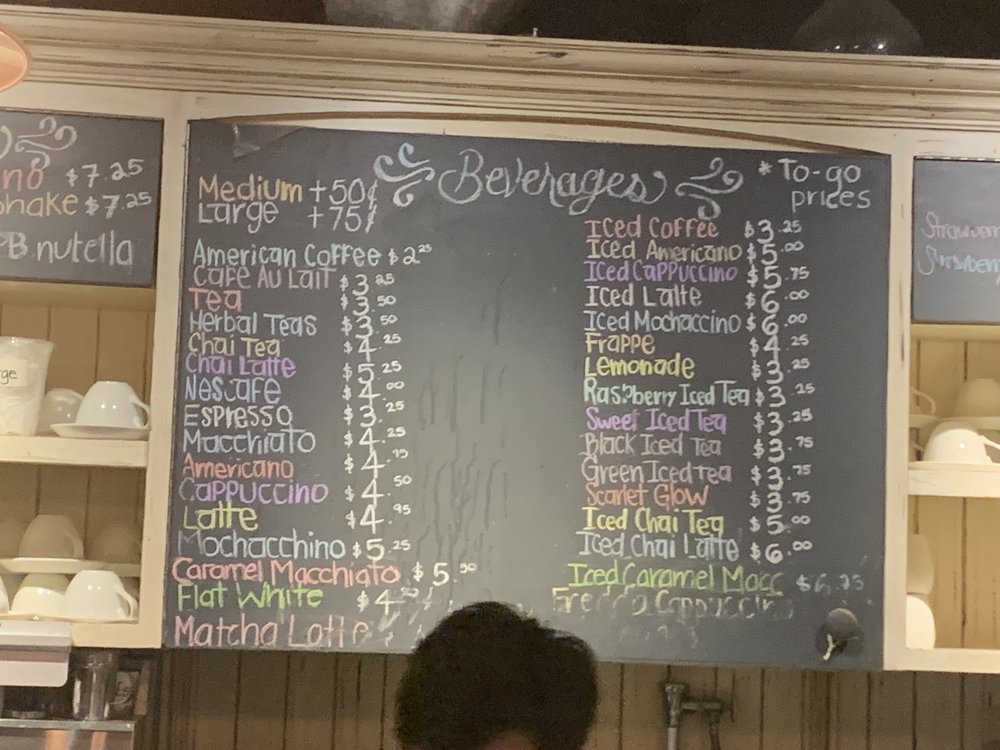 $7.25
Shake $7.25
PB.nutella
Beverages
* To-go
prices
Medium +50¢
Large +75¢
American Coffee $2.25
Cafe Au Lait $3.25
Tea $3.50
Herbal Teas $3.50
Chai Tea $4.25
Chai Latte $5.25
Nescafe $4.00
Espresso $3.25
Macchiato $4.25
Americano $4.75
Cappuccino $4.50
Latte $4.95
Mochacchino $5.25
Caramel Macchiato $5.50
Flat White $4
Matcha Latte
Iced Coffee $3.25
Iced Americano $5.00
Iced Cappuccino $5.75
Iced Latte $6.00
Iced Mochaccino $6.00
Frappe $4.25
Lemonade $3.25
Raspberry Iced Tea $3.25
Sweet Iced Tea $3.25
Black Iced Tea $3.75
Green Iced Tea $3.75
Scarlet Glow $3.75
Iced Chai Tea $5.00
Iced Chai Latte $6.00
Iced Caramel Macc $6.75